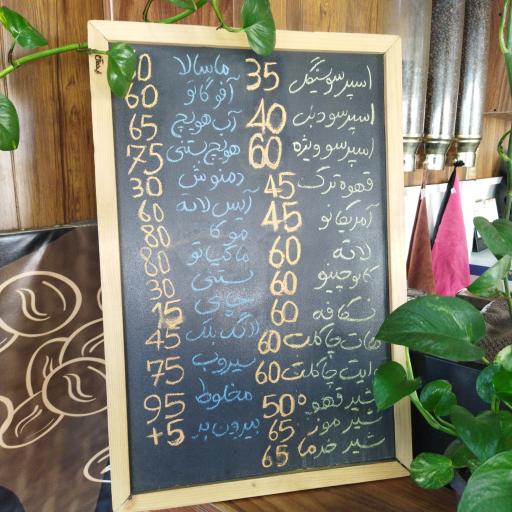 اسپرسو سینگل 35
اسپرسو دبل 40
اسپرسو ویژه 60
قهوه ترک 45
آمریکانو 45
لاته 60
کاپوچینو 60
نسکافه 60
هات چاکلت 60
وایت چاکلت 60
شیر قهوه 50
شیر موز 65
شیر خرما 65
ماسالا
آفوگاتو 60
آب هویج 65
هویج بستنی 75
دمنوش 30
آیس لاته 60
موکا 80
ماکیاتو 80
بستنی 30
چای 15
لانگ بلک 45
سیروپ 75
مخلوط 95
بیرون بر 5+